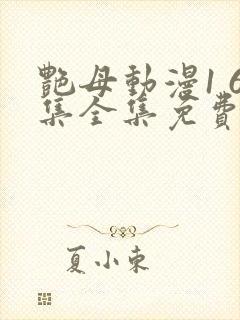 艷母動漫1 6
集全集免費
夏小東